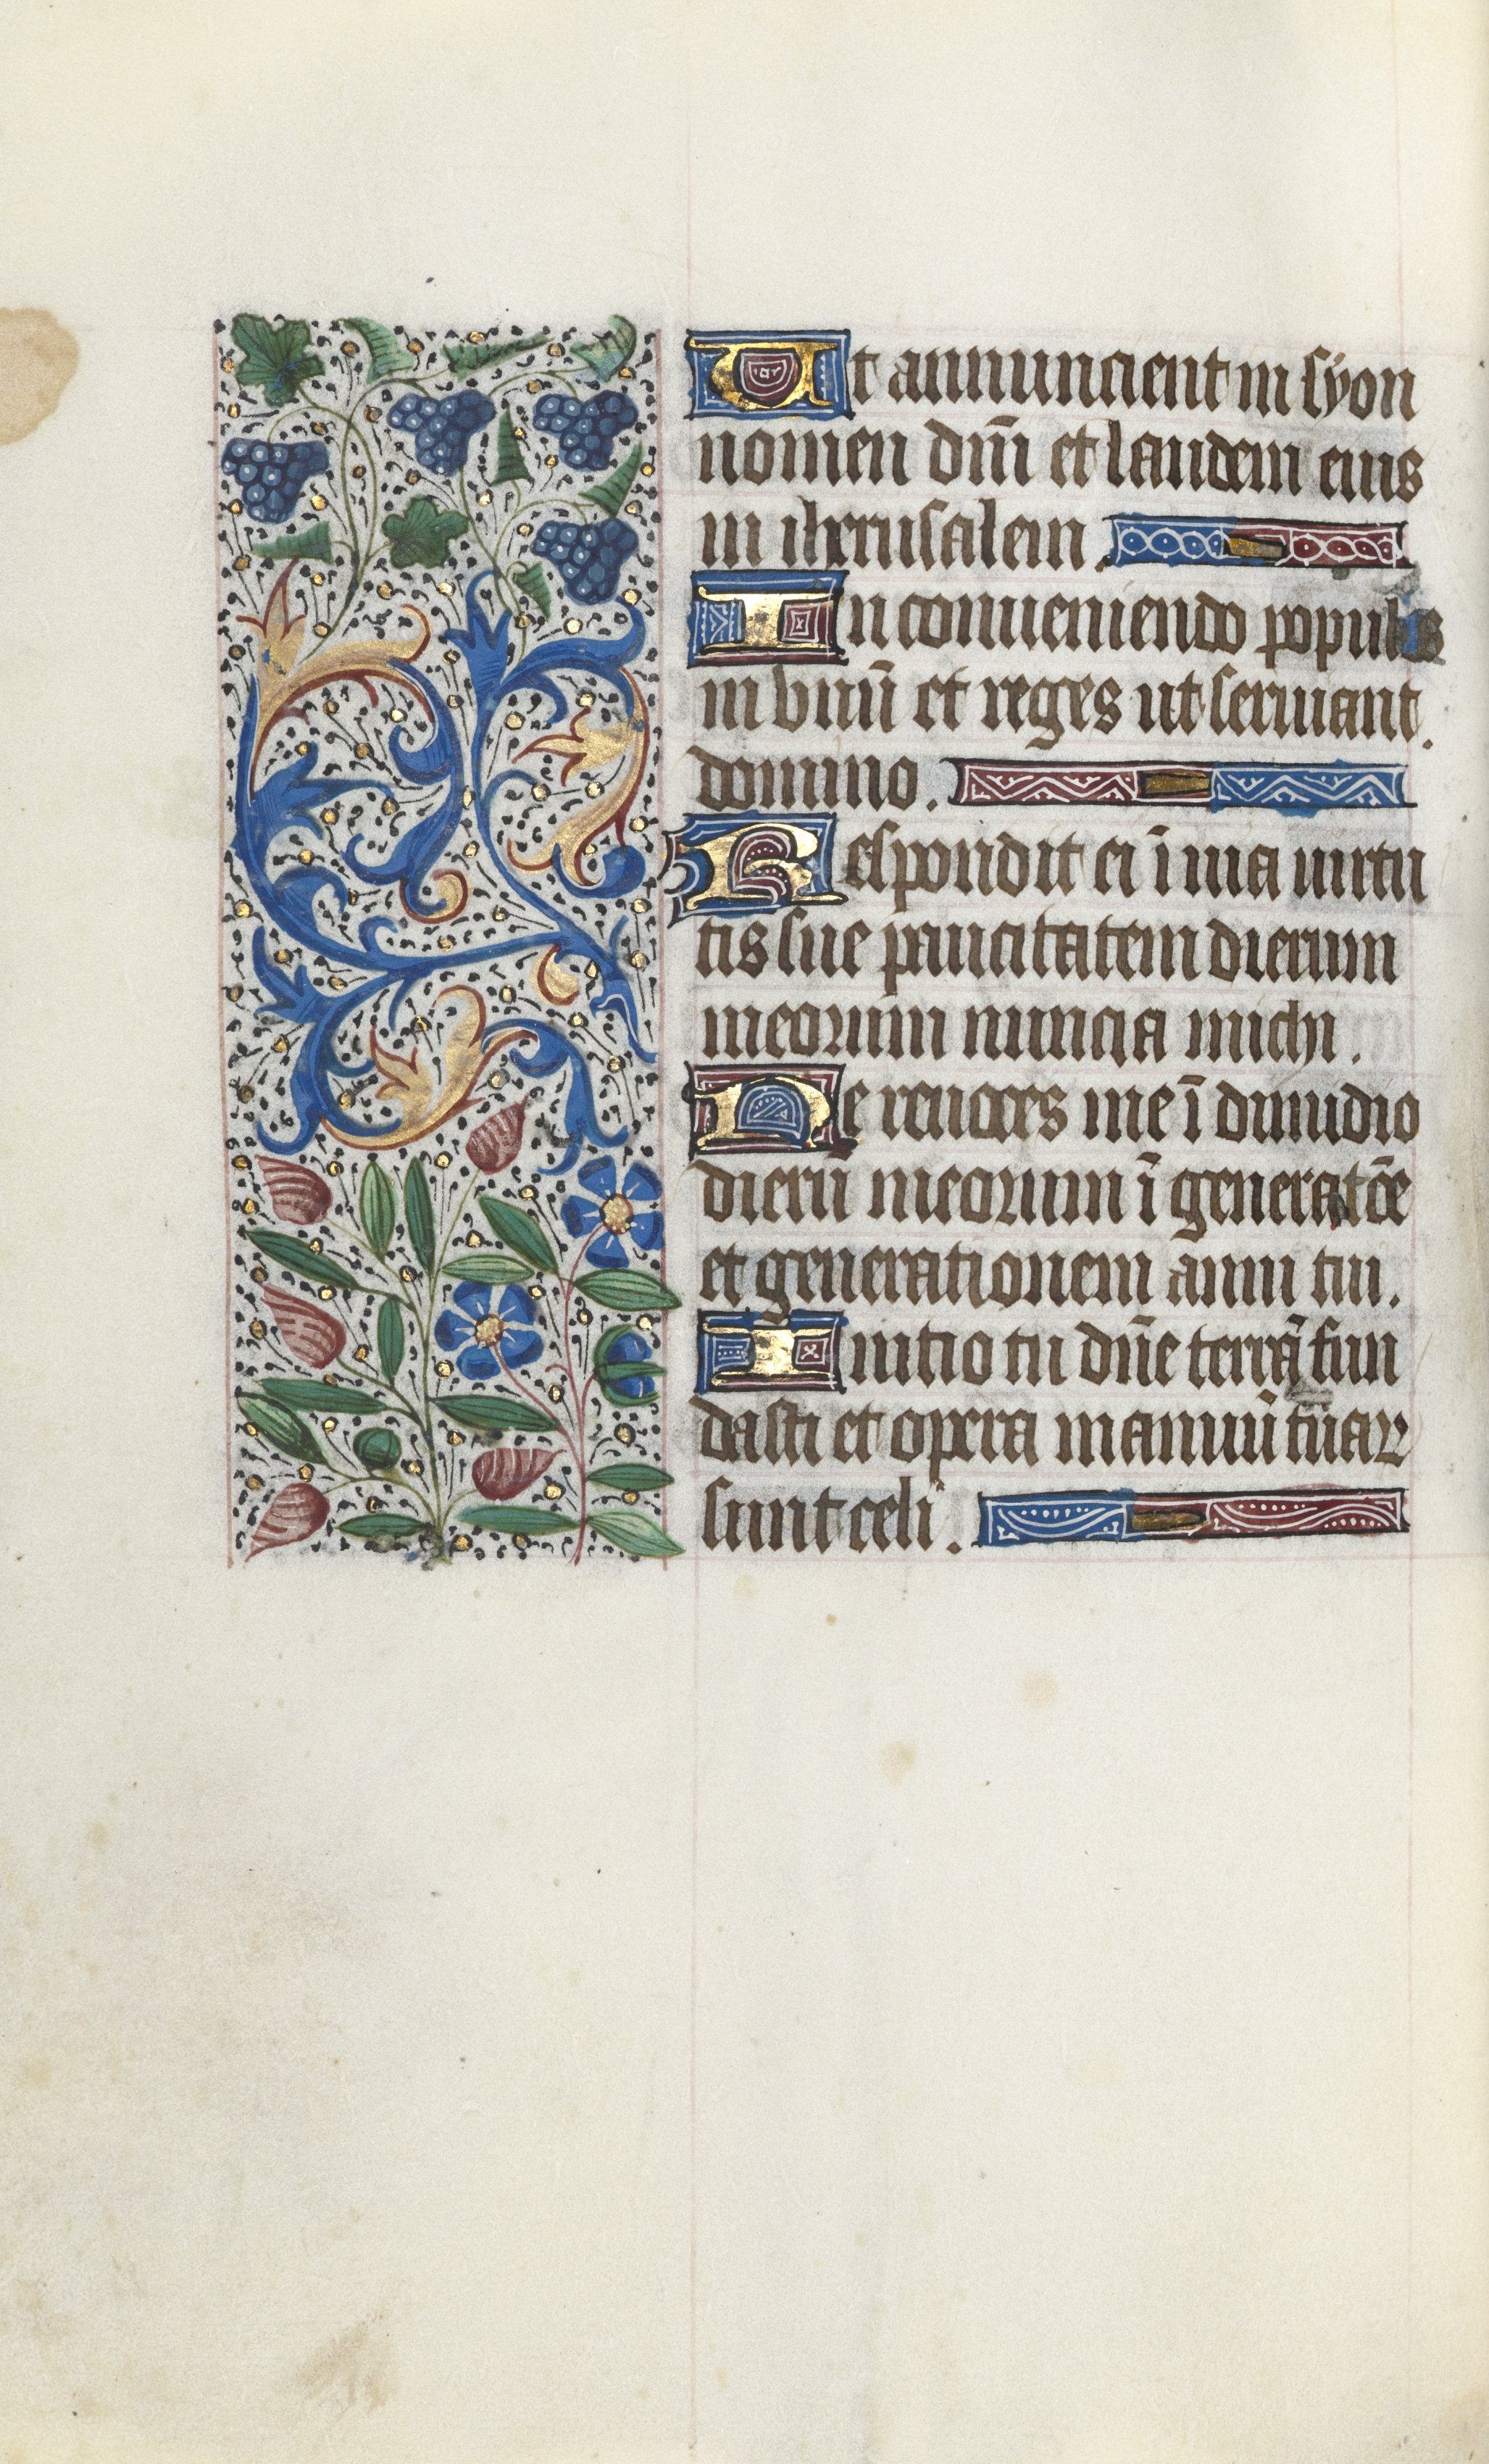 Ut annuncient in syon
nomen dñi et laudem eius
in iherusalem.
In conueniendo populos
in vnũ et reges ut seruiant.
domino.
Respondit ei ĩ uia uirtu
tis sue paucitatem dierum
meorum nuncia michi.
Ne reuoces me ĩ dimidio
dierũ meorum ĩ generatõe
et generationem anni tui.
Initio tu dñe terrã fun
dasti et opera manuũ tuaꝝ
sunt celi.